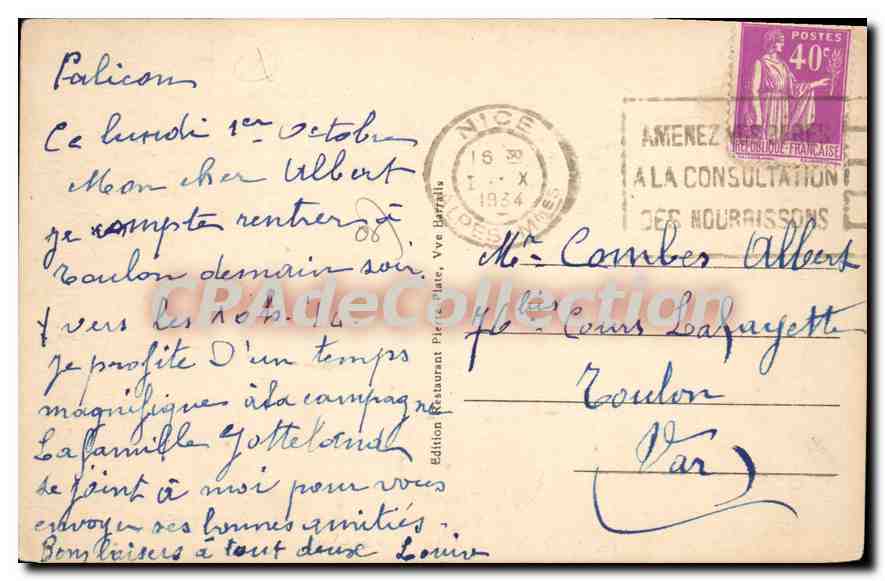 Falicon
Ce lundi 1er Octobre
Mon cher Albert
je compte rentrer à
Toulon demain soir
vers les
je profite d'un temps
magnifique à la campagne
La famille Jotteland
se joint à moi pour vous
envoyer ses bonnes amitiés.
Bons baisers à tout deux Louise
Edition Restaurant Pierre Plate, Vve Barralis
NICE
16 30
1 X
1934
ALPES Mmes
AMENEZ VOS BEBES
A LA CONSULTATION
DES NOURRISSONS
POSTES
40c
REPUBLIQUE FRANÇAISE
Mr. Combes Albert
76 bis Cours Lafayette
Toulon
Var
CPAdeCollection